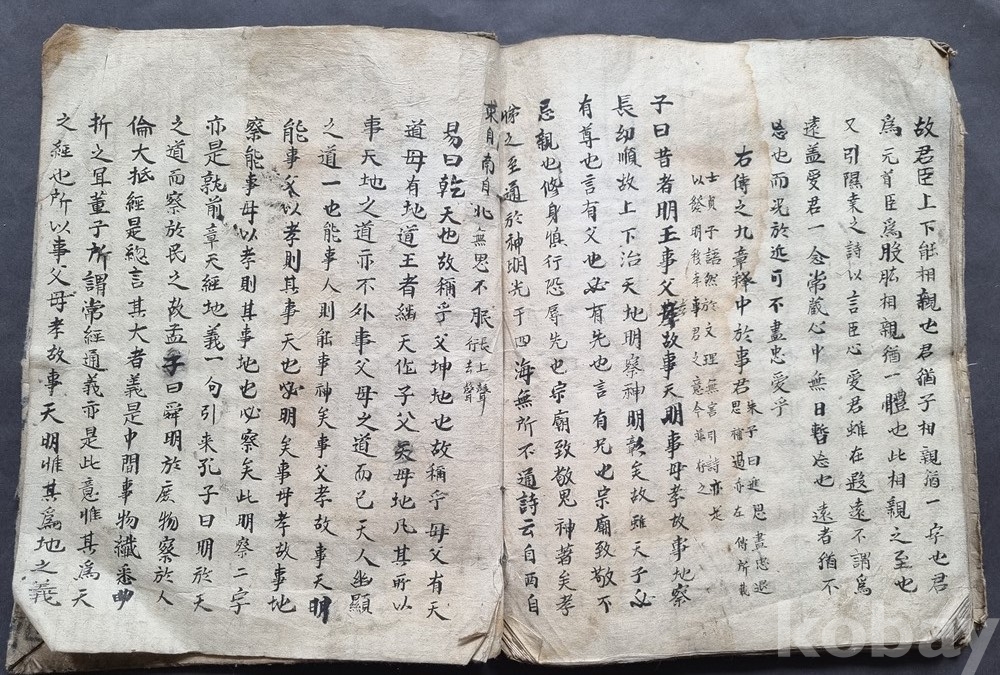 故君臣上下能相親也君猶子相親猶一字也君
爲元首臣爲股肱相親猶一體也此相親之至也
又引隰桑之詩以言臣心愛君雖在遐遠不謂爲
遠盖愛君一念常藏心中無日暫忘也遠者猶不
忘也而況於近可不盡忠愛乎
右傳之九章釋中於事君
朱子曰進思盡忠退
思補過亦左傳所載
士貞子語然於文理無害引詩亦是
以發明移孝事君之意今並存之
子曰昔者明王事父孝故事天明事母孝故事地察
長幼順故上下治天地明察神明彰矣故雖天子必
有尊也言有父也必有先也言有兄也宗廟致敬不
忘親也修身慎行恐辱先也宗廟致敬鬼神著矣孝
悌之至通於神明光于四海無所不通詩云自西自
東自南自北無思不服
長上聲
行去聲
易曰乾天也故稱乎父坤地也故稱乎母父有天
道母有地道王者繼天作子父天母地凡其所以
事天地之道亦不外事父母之道而已天人幽顯
之道一也能事人則能事神矣事父孝故事天明
能事父以孝則其事天也必明矣事母孝故事地
察能事母以孝則其事地也必察矣此明察二字
亦是就前章天經地義一句引来孔子曰明於天
之道而察於民之故孟子曰舜明於庶物察於人
倫大抵經是總言其大者義是中間事物纖悉曲
折之宜董子所謂常經通義亦是此意惟其爲天
之經也所以事父母孝故事天明惟其爲地之義
kobay